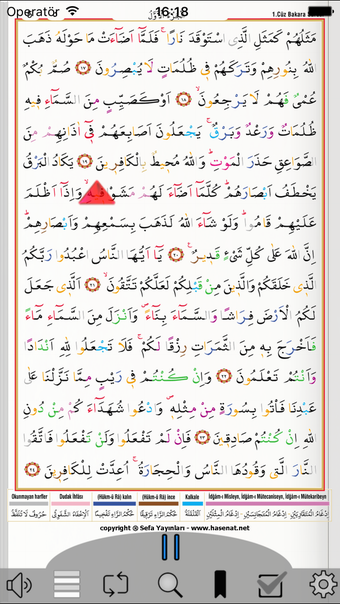 Operatör 16:18
1.Cüz Bakara
مَثَلُهُمْ كَمَثَلِ الَّذِى اسْتَوْقَدَ نَارًا ۚ فَلَمَّٓا اَضَٓاءَتْ مَا حَوْلَهُ ذَهَبَ
اللّٰهُ بِنُورِهِمْ وَتَرَكَهُمْ فٖى ظُلُمَاتٍ لَا يُبْصِرُونَ ﴿١٧﴾ صُمٌّ بُكْمٌ
عُمْىٌ فَهُمْ لَا يَرْجِعُونَ ۙ ﴿١٨﴾ اَوْ كَصَيِّبٍ مِنَ السَّمَٓاءِ فٖيهِ
ظُلُمَاتٌ وَرَعْدٌ وَبَرْقٌ ۚ يَجْعَلُونَ اَصَابِعَهُمْ فٖٓى اٰذَانِهِمْ مِنَ
الصَّوَاعِقِ حَذَرَ الْمَوْتِ ؕ وَاللّٰهُ مُحٖيطٌ بِالْكَافِرٖينَ ﴿١٩﴾ يَكَادُ الْبَرْقُ
يَخْطَفُ اَبْصَارَهُمْ ؕ كُلَّمَٓا اَضَٓاءَ لَهُمْ مَشَوْا فٖيهِ وَاِذَٓا اَظْلَمَ
عَلَيْهِمْ قَامُوا ؕ وَلَوْ شَٓاءَ اللّٰهُ لَذَهَبَ بِسَمْعِهِمْ وَاَبْصَارِهِمْ ؕ
اِنَّ اللّٰهَ عَلٰى كُلِّ شَىْءٍ قَدٖيرٌ ۟ ﴿٢٠﴾ يَٓا اَيُّهَا النَّاسُ اعْبُدُوا رَبَّكُمُ
الَّذٖى خَلَقَكُمْ وَالَّذٖينَ مِنْ قَبْلِكُمْ لَعَلَّكُمْ تَتَّقُونَ ۙ ﴿٢١﴾ اَلَّذٖى جَعَلَ
لَكُمُ الْاَرْضَ فِرَاشًا وَالسَّمَٓاءَ بِنَٓاءً ۖ وَاَنْزَلَ مِنَ السَّمَٓاءِ مَٓاءً
فَاَخْرَجَ بِهٖ مِنَ الثَّمَرَاتِ رِزْقًا لَكُمْ ۚ فَلَا تَجْعَلُوا لِلّٰهِ اَنْدَادًا
وَاَنْتُمْ تَعْلَمُونَ ﴿٢٢﴾ وَاِنْ كُنْتُمْ فٖى رَيْبٍ مِمَّا نَزَّلْنَا عَلٰى
عَبْدِنَا فَاْتُوا بِسُورَةٍ مِنْ مِثْلِهٖ ۖ وَادْعُوا شُهَدَٓاءَكُمْ مِنْ دُونِ
اللّٰهِ اِنْ كُنْتُمْ صَادِقٖينَ ﴿٢٣﴾ فَاِنْ لَمْ تَفْعَلُوا وَلَنْ تَفْعَلُوا فَاتَّقُوا
النَّارَ الَّتٖى وَقُودُهَا النَّاسُ وَالْحِجَارَةُ ۚ اُعِدَّتْ لِلْكَافِرٖينَ ﴿٢٤﴾
Okunmayan harfler Dudak İhfâsı (Hükm-ü Râ) kalın (Hükm-ü Râ) ince Kalkale İdğâm-ı Misleyn, İdğâm-ı Mütecaniseyn, İdğâm-ı Mütekaribeyn
copyright @ Sefa Yayınları - www.hasenat.net